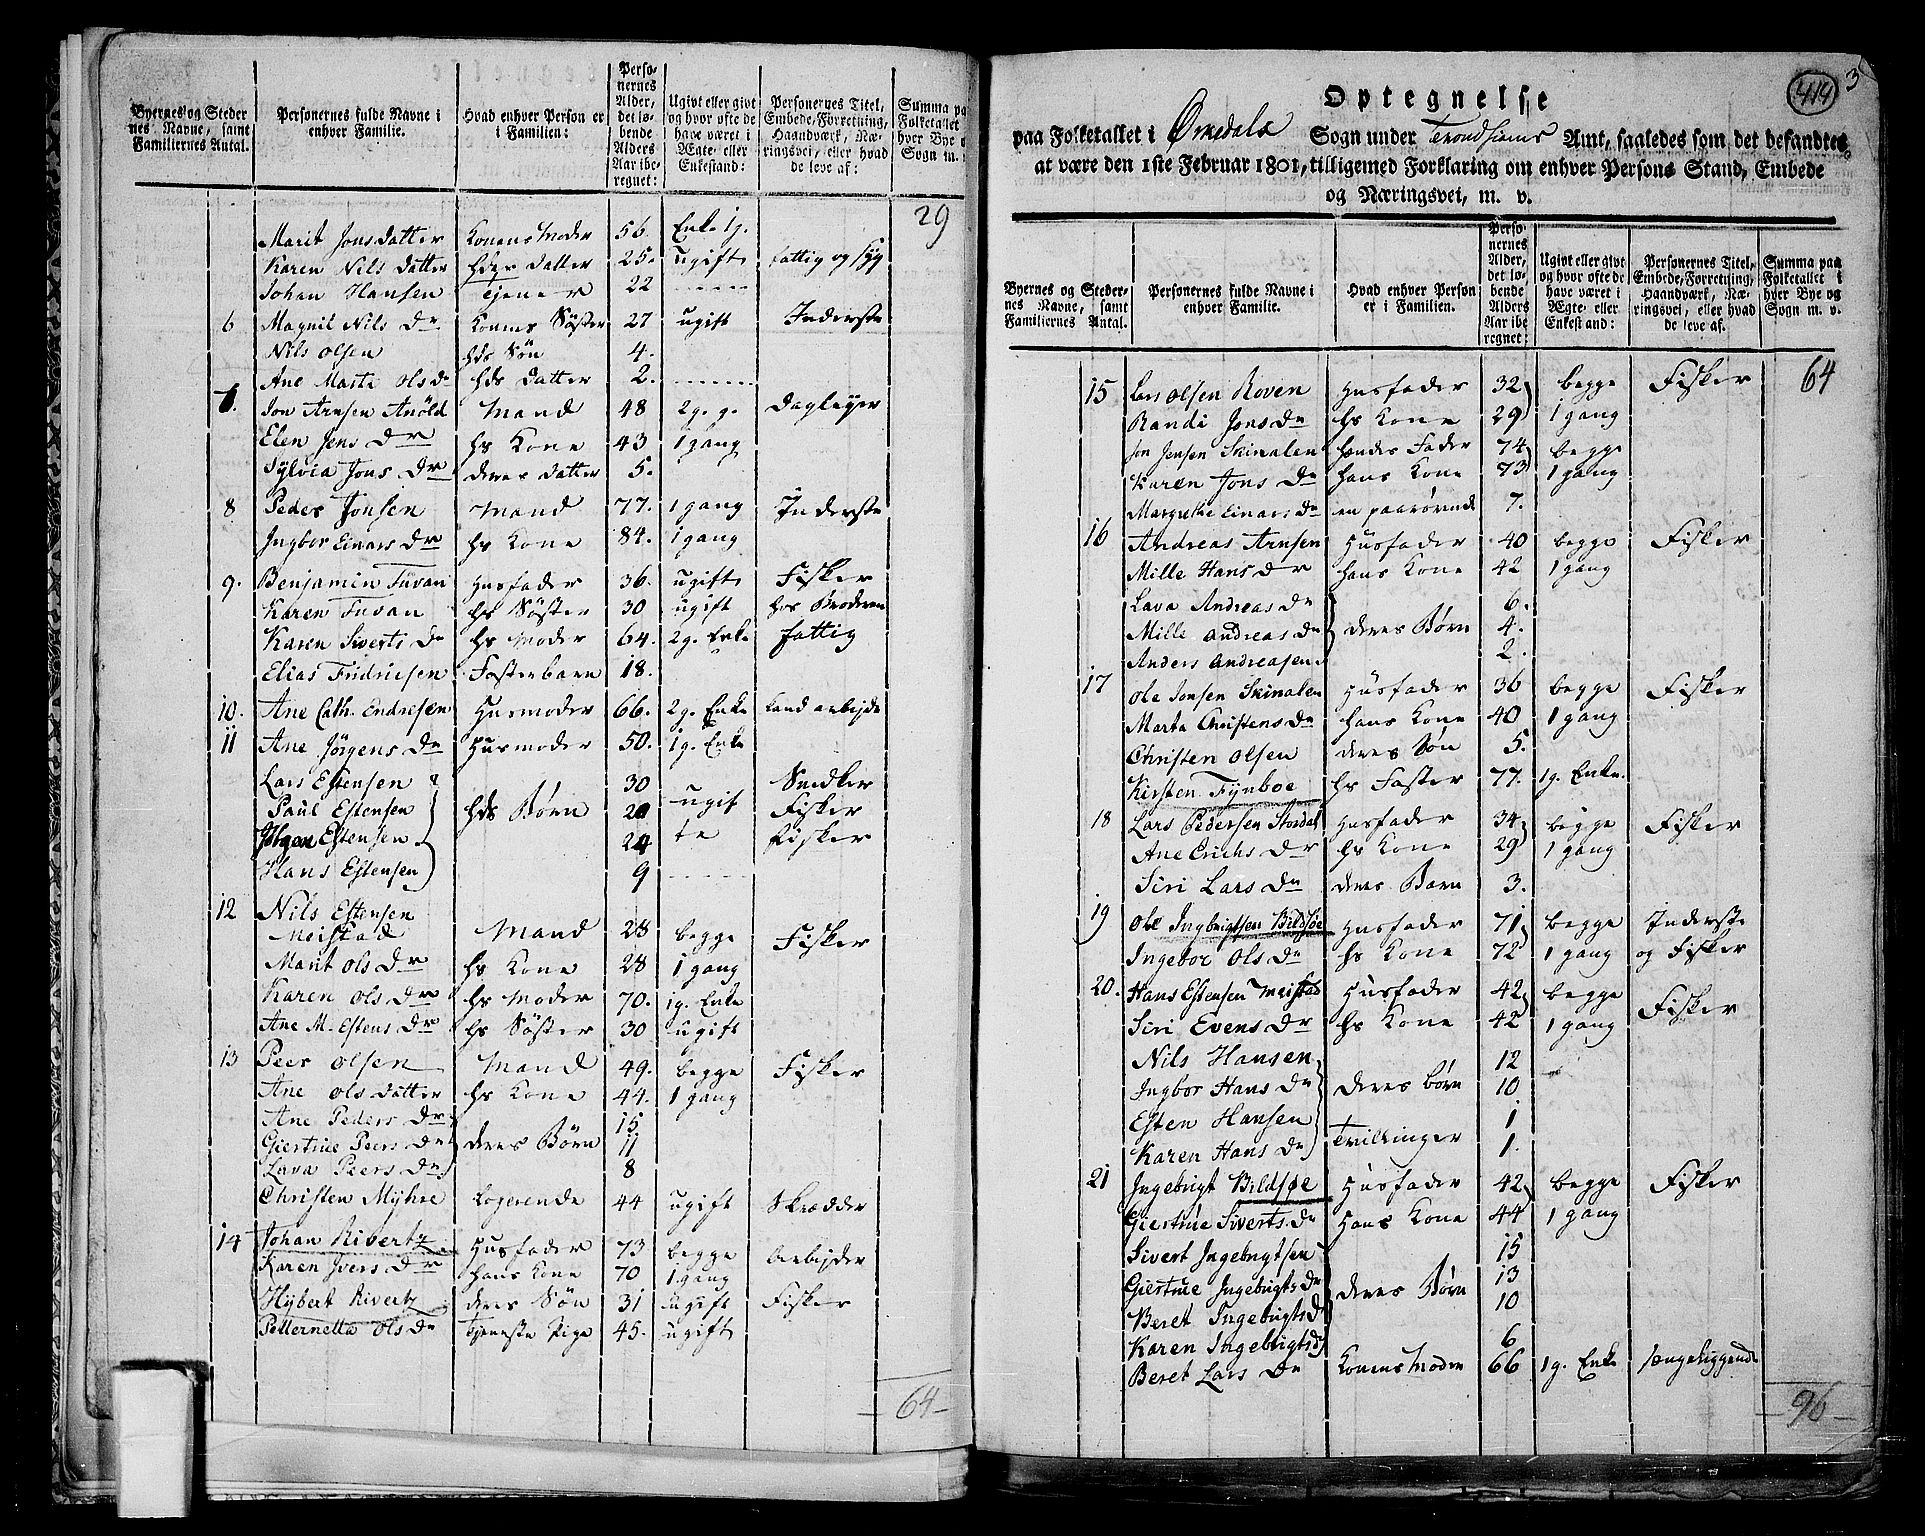 Byernes og Steder
nes Navne, samt
Familiernes Antal.
Personernes fulde Navne i
enhver Familie.
Hvad enhver Person er
i Familien:
Perso-
nernes
Alder,
det lø-
bende
Alders
Aar ibe
regnet:
Ugivt eller givt
og hvor ofte de
have været i
Ægte- eller
Enkestand:
Personernes Titel,
Embede, Forretning,
Haandværk, Næ-
ringsvei, eller hvad
de leve af:
Summa paa
Folketallet
hver Bye o
Sogn m.
29
Marit Jonsdatter Konens Moder 56. Enke 1g.
Karen Nils datter hdes datter 25. ugift fattig og syg
Johan Hansen Tjener 22
6 Magnil Nils Dr Konens Søster 27 ugift Inderste
Nils Olsen hds Søn 4.
Ane Marta Ols dr hds datter 2.
7. Jon Arnsen Anöld Mand 48 2g. g. Dagleyer
Elen Jens Dr hs Kone 43 1 gang
Sylvia Jons Dr deres datter 5.
8 Peder Jonsen Mand 77. 1 gang Inderste
Ingbor Einars Dr hs Kone 84. 1 gang
9. Benjamin Tuvan Husfader 36. ugift Fisker
Karen Tuvan hs Søster 30 ugift hos Broderen
Karen Siverts Dr hs Moder 64. 2g. Enke fattig
Elias Fridricsen Fosterbarn 18.
10. Ane Cath. Endresen Husmoder 66. 2g. Enke Land arbejde
11 Ane Jörgens Dr Husmoder 50. 1g. Enke
Lars Estensen 30 Snedker
Paul Estensen hds Børn 20 ugif Fisker
Estensen 24 te Fisker
Hans Estensen 9
12 Nils Estensen
Meistad Mand 28 begge Fisker
Marit Ols Dr hs Kone 28 1 gang
Karen Ols Dr hs Moder 70. 1g. Enke
Ane M. Estens Dr hs Søster 30 ugift
13 Peer Olsen Mand 49. begge Fisker
Ane Ols datter hs Kone 44. 1 gang
Ane Peders Dr 15
Giertrue Peers Dr deres Børn 11
Lava Peers Dr 8
Christen Myhre Logerende 44 ugift Skrædder
14 Johan Rivertz Husfader 73 begge Arbejder
Karen Ivers Dr hans Kone 70 1 gang
Hybert Rivertz deres Søn 31 ugift Fisker
Petternetta Ols Dr Tjeneste Pige 45. ugift
64
414
3
Optegnelse
paa Folketallet i Ørkedals Sogn under Trondhiems Amt, saaledes som det befandtes
at være den 1ste Februar 1801, tilligemed Forklaring om enhver Persons Stand, Embede
og Næringsvei, m. v.
Byernes og Steder-
nes Navne, samt
Familiernes Antal.
Personernes fulde Navne i
enhver Familie.
Hvad enhver Person
er i Familien.
Perso-
nernes
Alder,
det lø-
bende
Alders
Aar ibe
regnet:
Ugivt eller givt
og hvor ofte de
have været i
Ægte- eller
Enkestand:
Personernes Titel,
Embede, Forretning,
Haandværk, Næ-
ringsvei, eller hvad
de leve af.
Summa paa
Folketallet i
hver Bye og
Sogn m. v.
64
15 Lars Olsen Roven Husfader 32 begge Fisker
Randi Jons Dr hs Kone 29 1 gang
Jon Jensen Skinalen hendes Fader 74 begge
Karen Jons Dr hans Kone 73 1 gang
Margrethe Einars Dr en paarørende 7.
16 Andreas Arnsen Husfader 40 begge Fisker
Mille Hans Dr hans Kone 42 1 gang
Lava Andreas Dr 6.
Mille Andreas Dr deres Børn 4.
Anders Andreasen 2.
17 Ole Jonsen Skinalen Husfader 36 begge Fisker
Marta Christens Dr hans Kone 40 1 gang
Christen Olsen deres Søn 5.
Kirsten Fynboe hs Faster 77. 1g. Enke.
18 Lars Pedersen Stordal Husfader 34 begge Fisker
Ane Erichs Dr hs Kone 29 1 gang
Siri Lars Dr deres Barn 3.
19 Ole Ingbrigtsen Bildsøe Husfader 71 begge Inderste
Ingebor Ols Dr hs Kone 72 1 gang og Fisker
20. Hans Estensen Meistad Husfader 42 begge Fisker
Siri Evens Dr hs Kone 42 1 gang
Nils Hansen 12
Ingbor Hans Dr deres børn 10
Esten Hansen 1
Karen Hans Dr Tvillinger 1.
21 Ingebrigt Bildsøe Husfader 42 begge Fisker
Giertrue Siverts Dr Hans Kone 44 1 gang
Sivert Ingebrigtsen 15
Giertrue Ingebrigts Dr deres Børn 13
Beret Ingebrigts D 10
Karen Ingebrigts D 6
Beret Lars Dr Konens Moder 66 1g. Enke sængeliggende
96